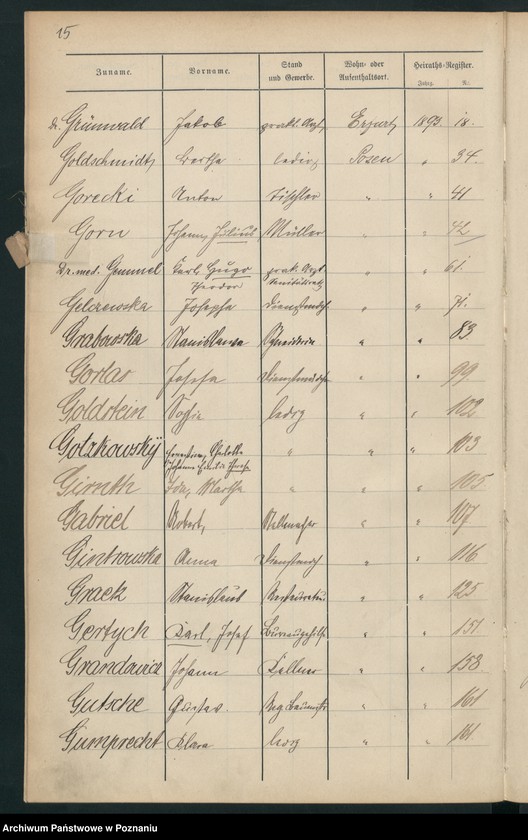 15
Zuname. Vorname. Stand und Gewerbe. Wohn- oder Aufenthaltsort. Heiraths-Register.
Jahrg. N.
dr. Grünwald Jakob prakt. Arzt, Erfurt 1893. 18.
Goldschmidt, Bertha ledig Posen " 34.
Gorecki Anton Tischler " " 41
Gorn Johann Julius Müller " " 42
Dr. med. Gemmel Karl Hugo Theodor prakt. Arzt Sanitätsrath " " 61.
Gelczewska Josepha Dienstmdch " " 71.
Grabowska Stanislawa Schneiderin " " 83
Gorlas Josepha Dienstmädch " " 99
Goldstein Sofie ledig " " 102
Golzkowsky Johanna Emilie " " " 103
Girnth Ida, Martha " " " 105
Gabriel Robert, Stellmacher " " 107
Gintrowska Anna Dienstmdch " " 116
Graek Stanislaus Restaurateur " " 125
Gertych Karl, Josef Bureaugehilfe " " 151
Grandowicz Johann Kellner " " 158
Gutsche Gustav. Reg. Baumstr " " 161
Gumprecht Klara ledig " " 161.
Archiwum Państwowe w Poznaniu